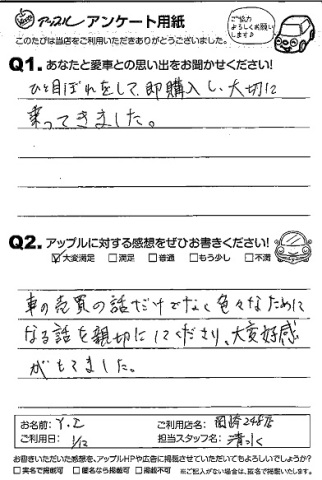 アップル アンケート用紙
ご協力
よろしくお願い
します♪
このたびは当店をご利用いただきありがとうございました。
Q1. あなたと愛車との思い出をお聞かせください!
ひと目ぼれをして、即購入し、大切に
乗ってきました。
Q2. アップルに対する感想をぜひお書きください!
☑大変満足 □満足 □普通 □もう少し □不満
車の売買の話だけでなく色々なために
なる話を親切にしてくださり、大変好感
がもてました。
お名前: Y.I ご利用店名: 岡崎248店
ご利用日: 1/12 担当スタッフ名: 清水
お書きいただいた感想を、アップルHPや広告に掲載させていただいてもよろしいでしょうか?
□実名で掲載可 □匿名なら掲載可 □掲載不可 ※ご記入がない場合は、匿名で掲載いたします。